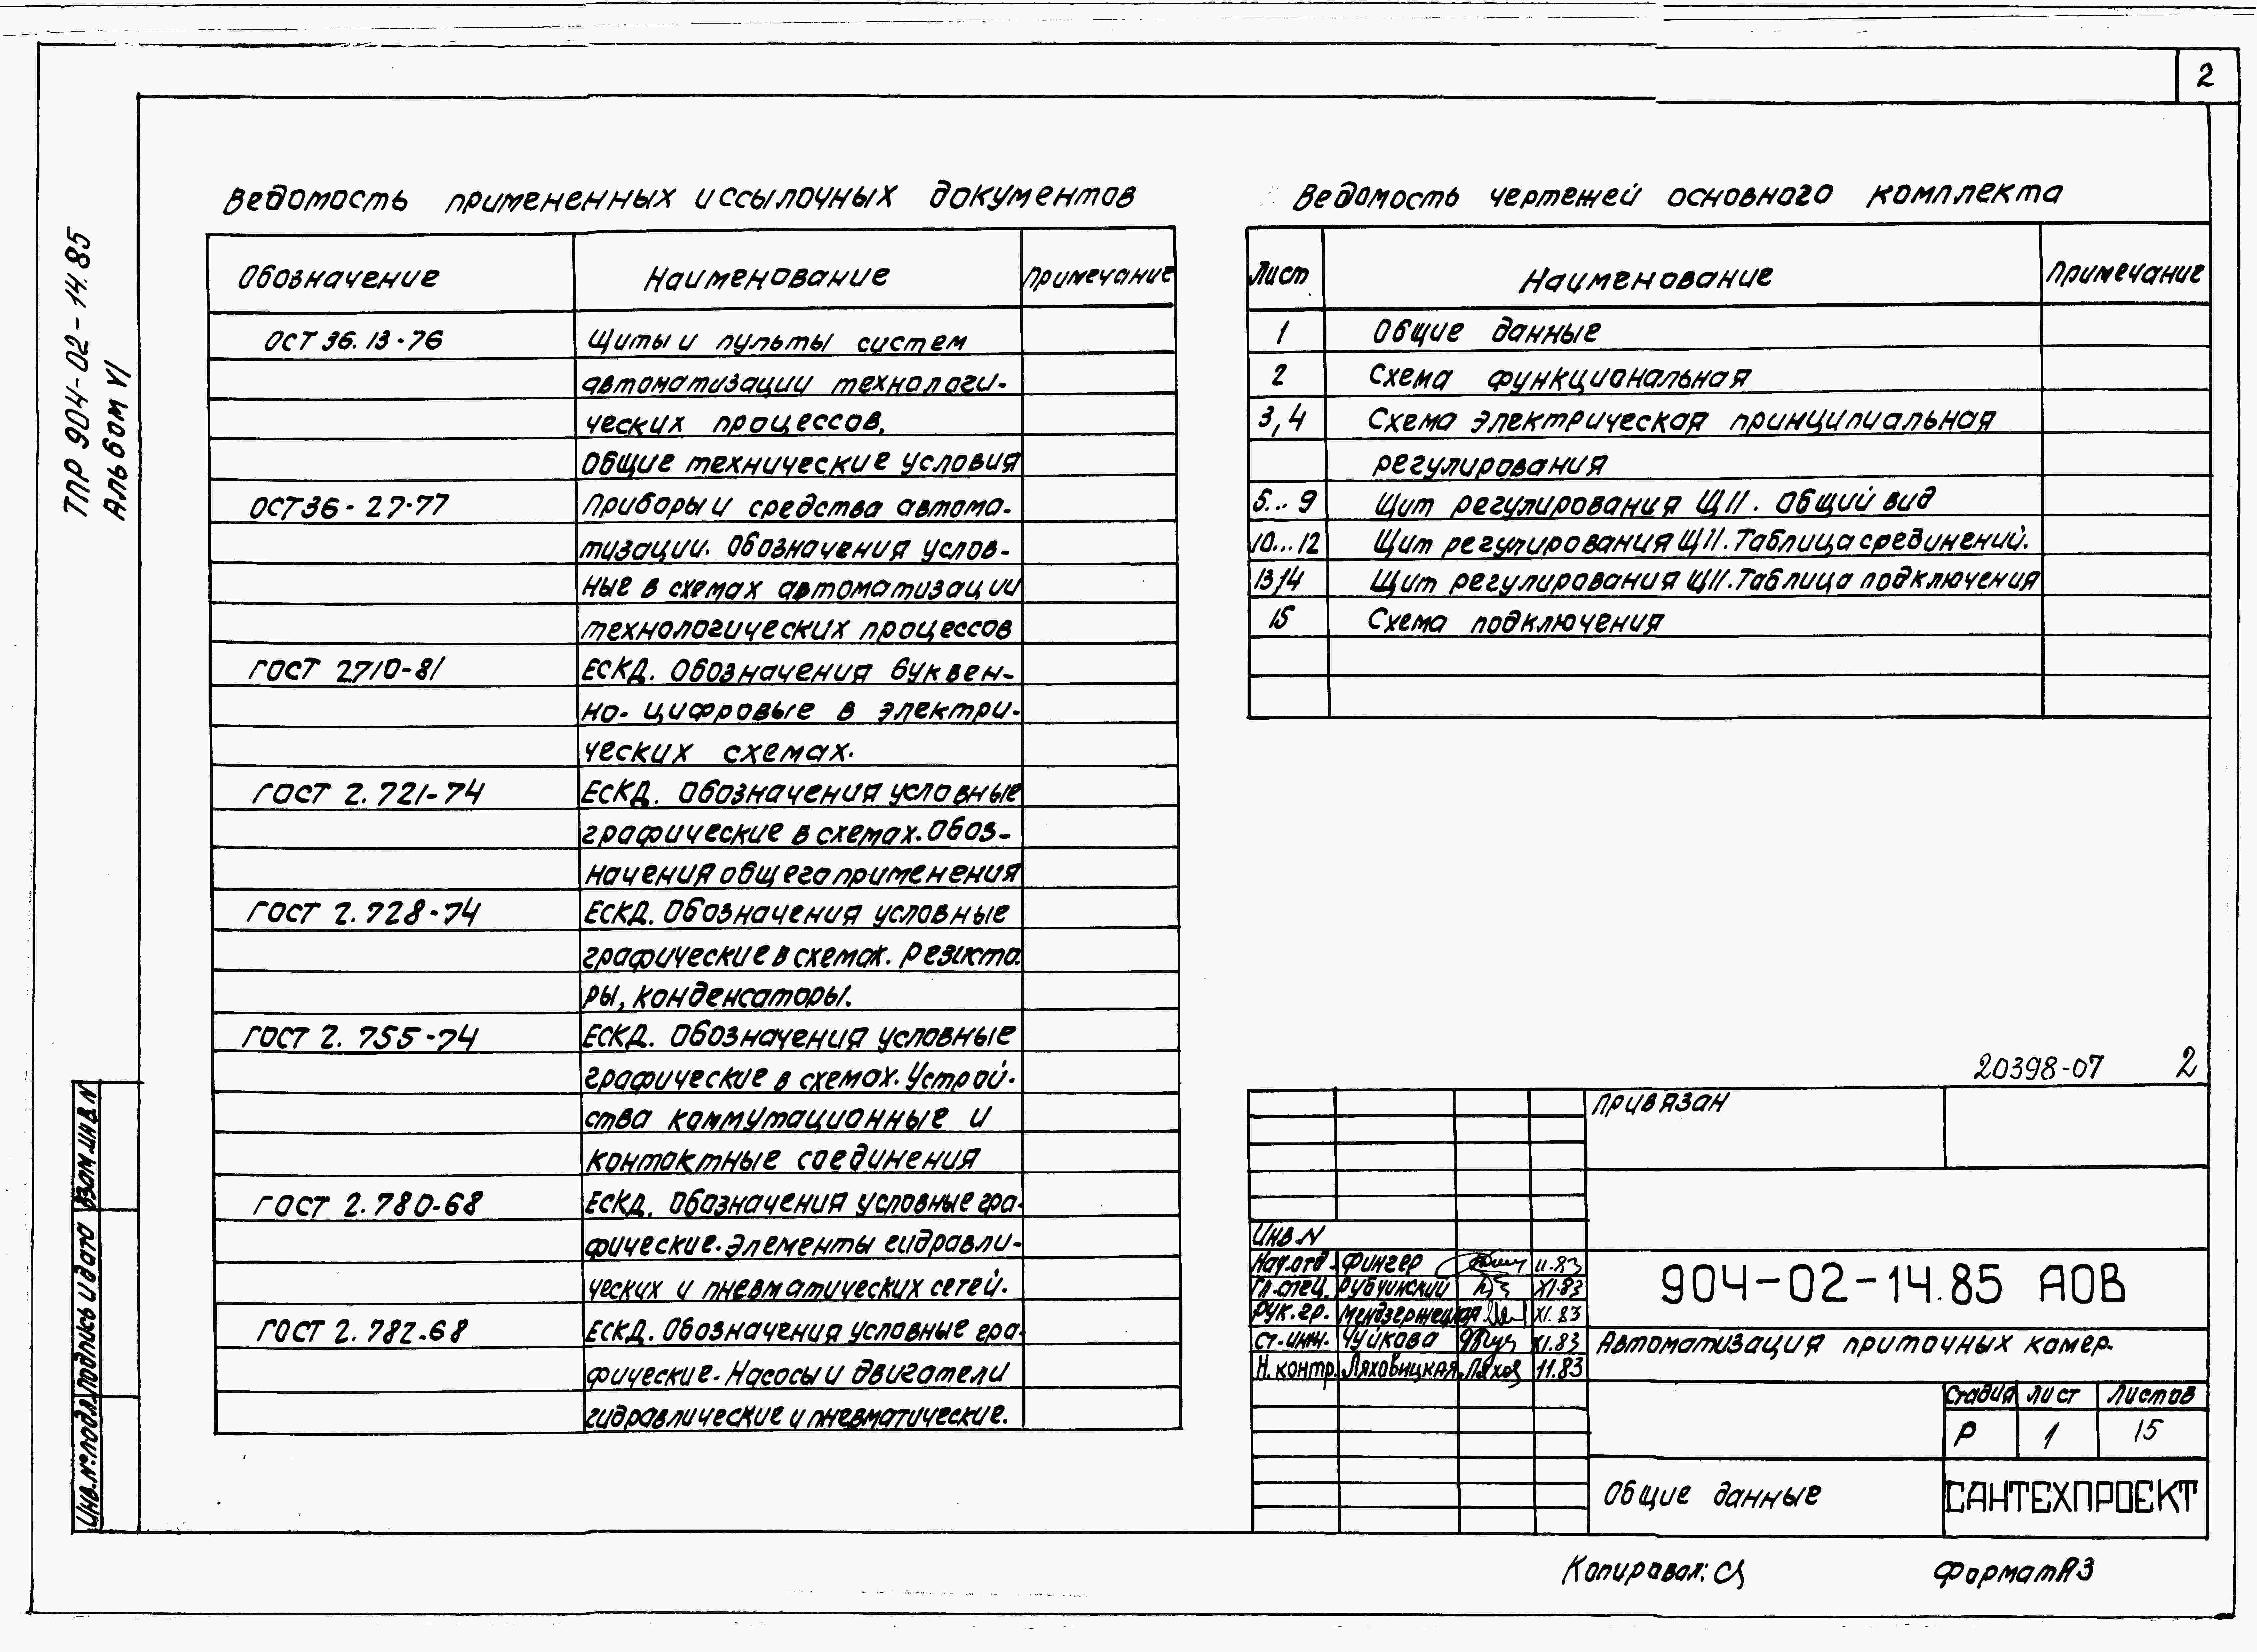 2
ТПР 904-02-14.85
Альбом VI
Ведомость примененных и ссылочных документов
Обозначение Наименование Примечание
ОСТ 36.13-76 Щиты и пульты систем
автоматизации технологи-
ческих процессов.
Общие технические условия
ОСТ36-27-77 Приборы и средства автома-
тизации. Обозначения услов-
ные в схемах автоматизации
технологических процессов
ГОСТ 2710-81 ЕСКД. Обозначения буквен-
но-цифровые в электри-
ческих схемах.
ГОСТ 2.721-74 ЕСКД. Обозначения условные
графические в схемах. Обоз-
начения общего применения
ГОСТ 2.728-74 ЕСКД. Обозначения условные
графические в схемах. Резисто-
ры, конденсаторы.
ГОСТ 2.755-74 ЕСКД. Обозначения условные
графические в схемах. Устрой-
ства коммутационные и
контактные соединения
ГОСТ 2.780-68 ЕСКД. Обозначения условные гра-
фические. Элементы гидравли-
ческих и пневматических сетей.
ГОСТ 2.782-68 ЕСКД. Обозначения условные гра-
фические. Насосы и двигатели
гидравлические и пневматические.
Ведомость чертежей основного комплекта
Лист Наименование Примечание
1 Общие данные
2 Схема функциональная
3,4 Схема электрическая принципиальная
регулирования
5...9 Щит регулирования ЩП. Общий вид
10...12 Щит регулирования ЩП. Таблица соединений.
13,14 Щит регулирования ЩП. Таблица подключения
15 Схема подключения
20398-07 2
Привязан
Инв. N
Нач. отд. Фингер 11.83
Гл. спец. Рубчинский XI.83
Рук. гр. Мендзержецкая XI.83
Ст. инж. Чуйкова XI.83
Н. контр. Ляховицкая Ляхов 11.83
904-02-14.85 АОВ
Автоматизация приточных камер.
Стадия Лист Листов
Р 1 15
Общие данные
САНТЕХПРОЕКТ
Взам. инв. N
Подпись и дата
Инв. № подл.
Копировал:
Формат А3